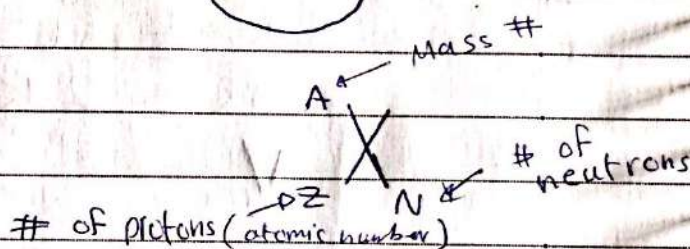 Mass #
A
X
# of
neutrons
Z N
# of protons (atomic number)